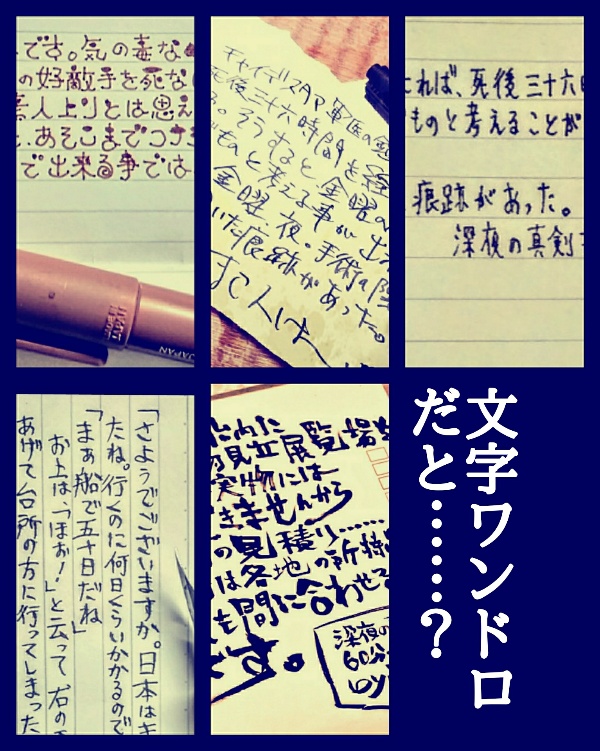 です。気の毒な
の好敵手を死な
人上りとは思え
、あそこまでコナ
で出来る事では
JAPAN
軍医の
死後三十六時間を
。そうすると金曜の
ものと考える事が出
金曜夜。手術の
いた痕跡があった。
れば、死後三十六
ものと考えることが
痕跡があった。
深夜の真剣
「さようでございますか。日本は
たね。行くのに何日くらいかかるので
「まぁ船で五十日だね」
お上は「ほぉ!」と云って右の
あげて台所の方に行ってしまった
見立展覧場
実物には
きませんから
の見積り……
は各地の所
も間に合わせる
です。
深夜の
60分
文字ワンドロ
だと………?